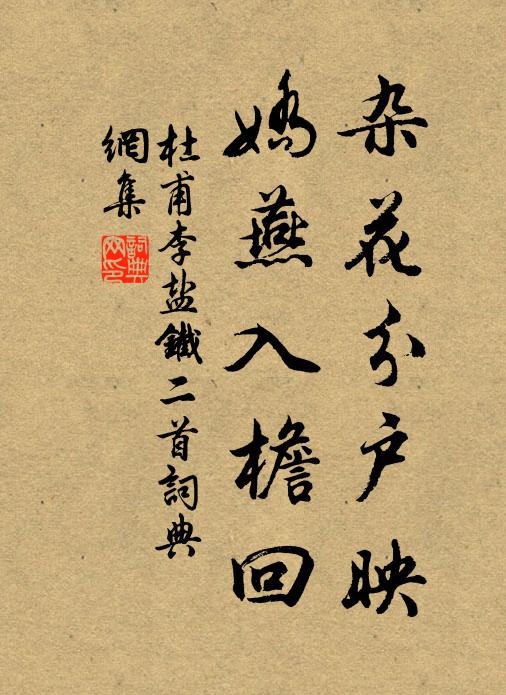 杂花分户映
娇燕入檐回
杜甫李盐鐵二首詞典
網集
詞典
网印